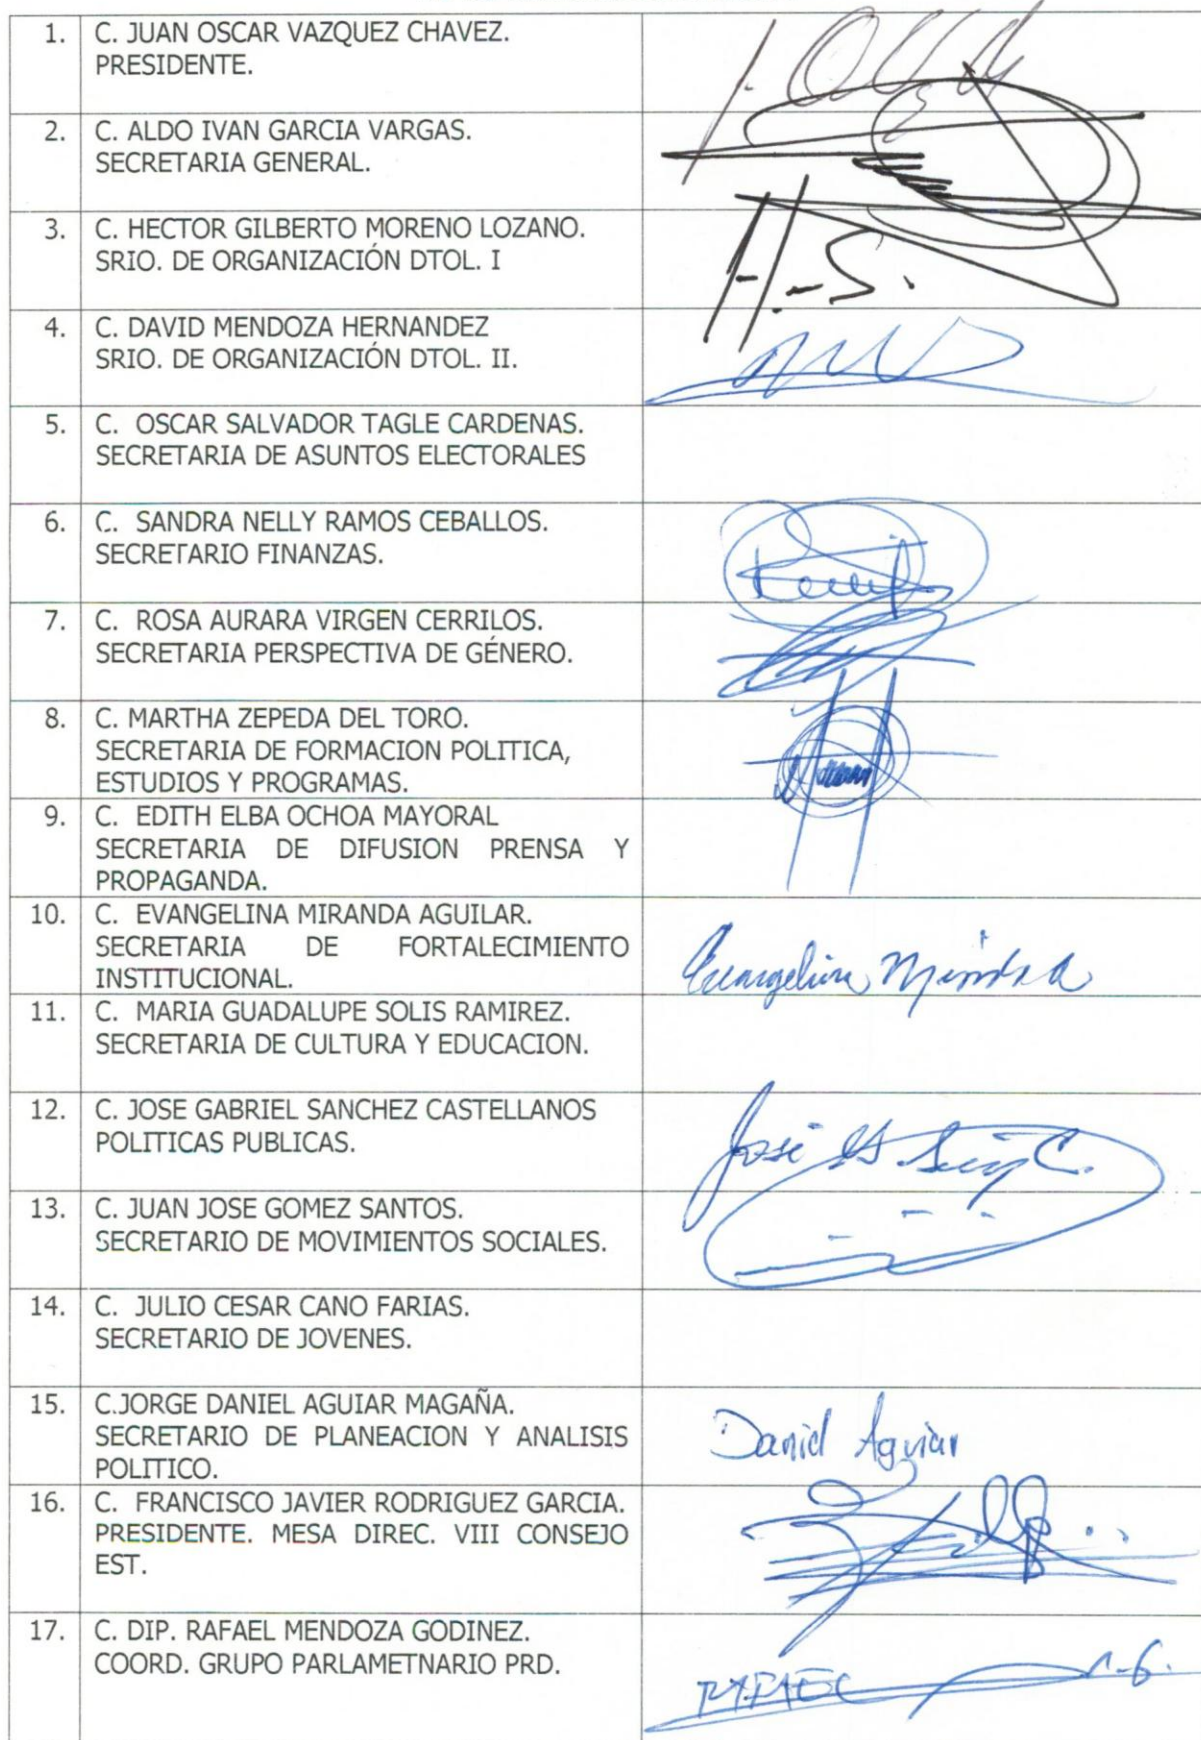 1. C. JUAN OSCAR VAZQUEZ CHAVEZ.
PRESIDENTE.
2. C. ALDO IVAN GARCIA VARGAS.
SECRETARIA GENERAL.
3. C. HECTOR GILBERTO MORENO LOZANO.
SRIO. DE ORGANIZACIÓN DTOL. I
4. C. DAVID MENDOZA HERNANDEZ
SRIO. DE ORGANIZACIÓN DTOL. II.
5. C. OSCAR SALVADOR TAGLE CARDENAS.
SECRETARIA DE ASUNTOS ELECTORALES
6. C. SANDRA NELLY RAMOS CEBALLOS.
SECRETARIO FINANZAS.
7. C. ROSA AURARA VIRGEN CERRILOS.
SECRETARIA PERSPECTIVA DE GÉNERO.
8. C. MARTHA ZEPEDA DEL TORO.
SECRETARIA DE FORMACION POLITICA,
ESTUDIOS Y PROGRAMAS.
9. C. EDITH ELBA OCHOA MAYORAL
SECRETARIA DE DIFUSION PRENSA Y
PROPAGANDA.
10. C. EVANGELINA MIRANDA AGUILAR.
SECRETARIA DE FORTALECIMIENTO
INSTITUCIONAL.
Evangelina Miranda
11. C. MARIA GUADALUPE SOLIS RAMIREZ.
SECRETARIA DE CULTURA Y EDUCACION.
12. C. JOSE GABRIEL SANCHEZ CASTELLANOS
POLITICAS PUBLICAS.
José
13. C. JUAN JOSE GOMEZ SANTOS.
SECRETARIO DE MOVIMIENTOS SOCIALES.
14. C. JULIO CESAR CANO FARIAS.
SECRETARIO DE JOVENES.
15. C.JORGE DANIEL AGUIAR MAGAÑA.
SECRETARIO DE PLANEACION Y ANALISIS
POLITICO.
Daniel Aguiar
16. C. FRANCISCO JAVIER RODRIGUEZ GARCIA.
PRESIDENTE. MESA DIREC. VIII CONSEJO
EST.
17. C. DIP. RAFAEL MENDOZA GODINEZ.
COORD. GRUPO PARLAMETNARIO PRD.
RAFAEL